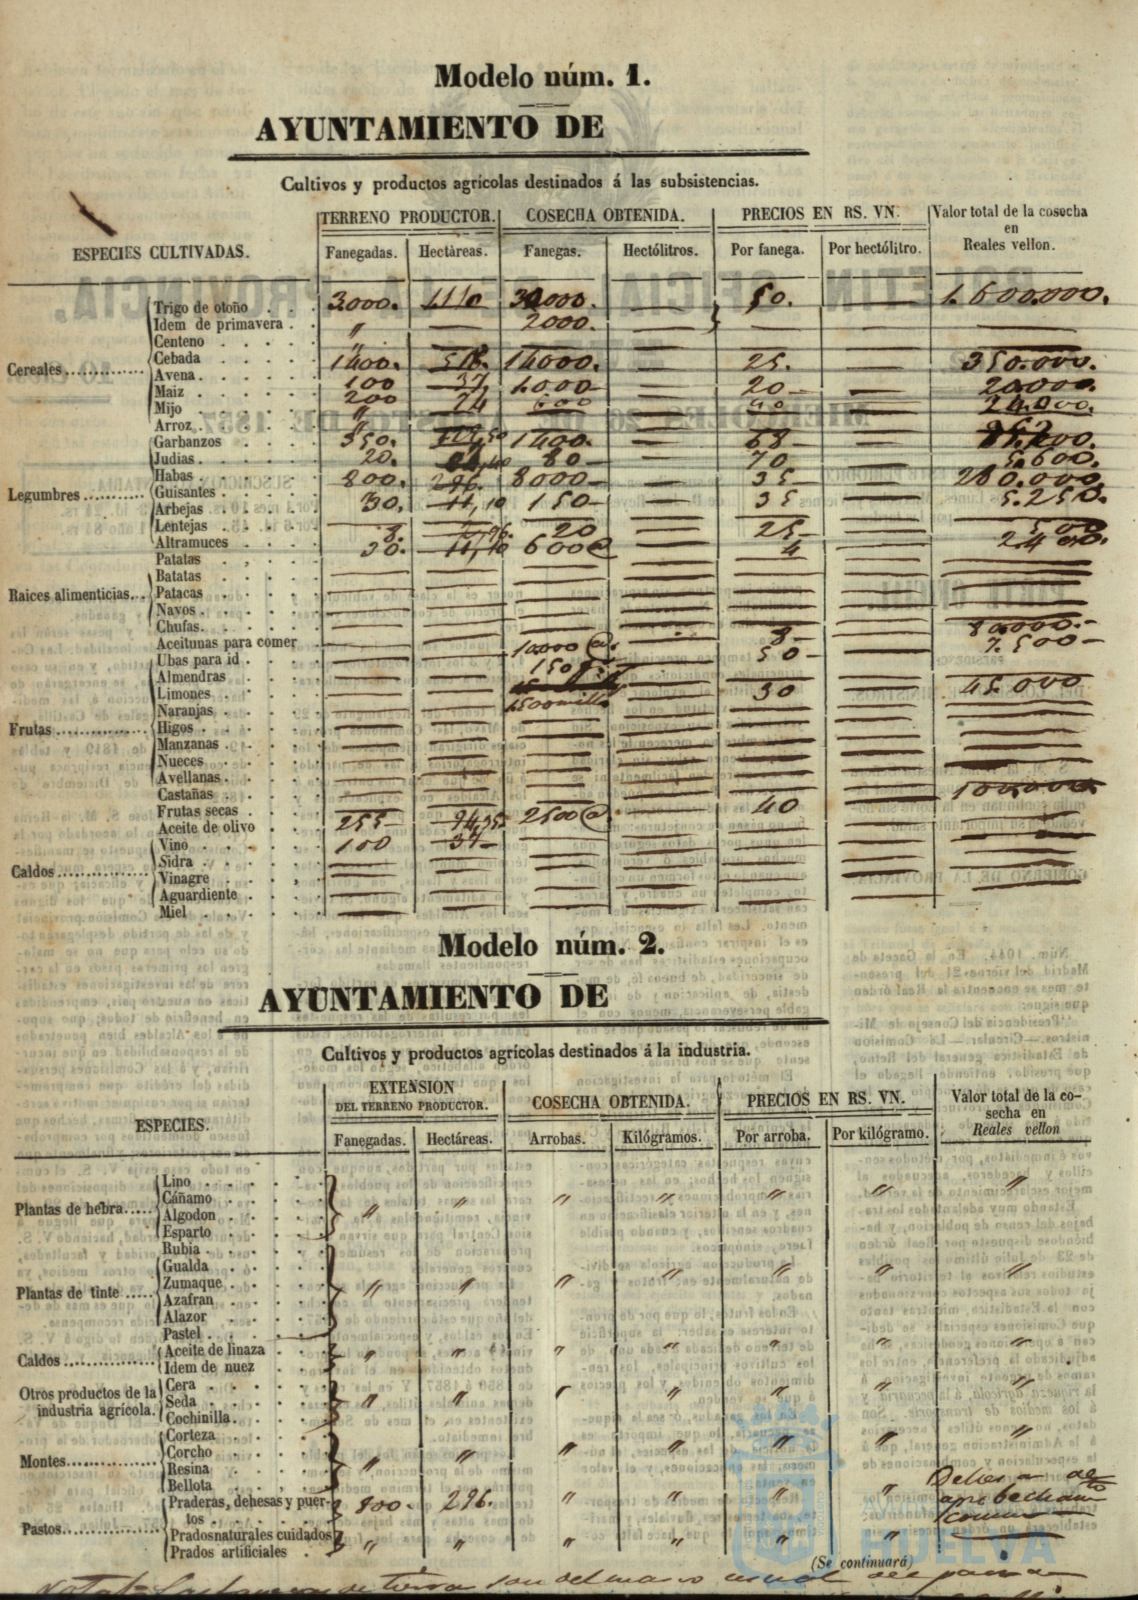 Modelo núm. 1.
AYUNTAMIENTO DE
Cultivos y productos agrícolas destinados á las subsistencias.
ESPECIES CULTIVADAS. TERRENO PRODUCTOR. COSECHA OBTENIDA. PRECIOS EN RS. VN. Valor total de la cosecha en Reales vellon.
Fanegadas. Hectàreas. Fanegas. Hectólitros. Por fanega. Por hectólitro.
Cereales
Trigo de otoño 3.000. 1.110 30.000. 50. 1.600.000.
Idem de primavera " 2000.
Centeno "
Cebada 1400. 518. 14000. 25. 350.000.
Avena 100 37 1.000 20 20.000.
Maiz 200 74 600 40 24.000.
Mijo "
Arroz "
Legumbres
Garbanzos 350. 1400. 68
Judias 20. 80 70 5.600.
Habas 800. 296. 8000 35 280.000.
Guisantes
Arbejas 30. 11,10 150 35 5.250.
Lentejas 8. 2,96. 20 25 500
Altramuces 30. 11,10 600@ 4 2.400.
Raices alimenticias
Patatas
Batatas
Patacas
Navos
Chufas
Frutas
Aceitunas para comer 10.000 @. 8 80.000.
Ubas para id 150 50 7.500
Almendras
Limones
Naranjas 1.500 mill. 30 45.000
Higos
Manzanas
Nueces
Avellanas
Castañas
Frutas secas
Caldos
Aceite de olivo 255 94,35 2500@. 40 100.000.
Vino 100 37
Sidra
Vinagre
Aguardiente
Miel
Modelo núm. 2.
AYUNTAMIENTO DE
Cultivos y productos agrícolas destinados á la industria.
ESPECIES. EXTENSION DEL TERRENO PRODUCTOR. COSECHA OBTENIDA. PRECIOS EN RS. VN. Valor total de la cosecha en Reales vellon
Fanegadas. Hectáreas. Arrobas. Kilógramos. Por arroba. Por kilógramo.
Plantas de hebra
Lino
Cáñamo
Algodon " " " " " " "
Esparto
Plantas de tinte
Rubia
Gualda
Zumaque " " " " " " "
Azafran
Alazor
Pastel
Caldos
Aceite de linaza " " " " " " "
Idem de nuez
Otros productos de la industria agrícola.
Cera
Seda " " " " " " "
Cochinilla
Montes
Corteza
Corcho " " " " " " "
Resina
Bellota
Pastos
Praderas, dehesas y puertos 800. 296. " " " " Dehesa de aprobechamto comun
Prados naturales cuidados
Prados artificiales " " " " " "
(Se continuará)
AYUNTAMIENTO DE
HUELVA